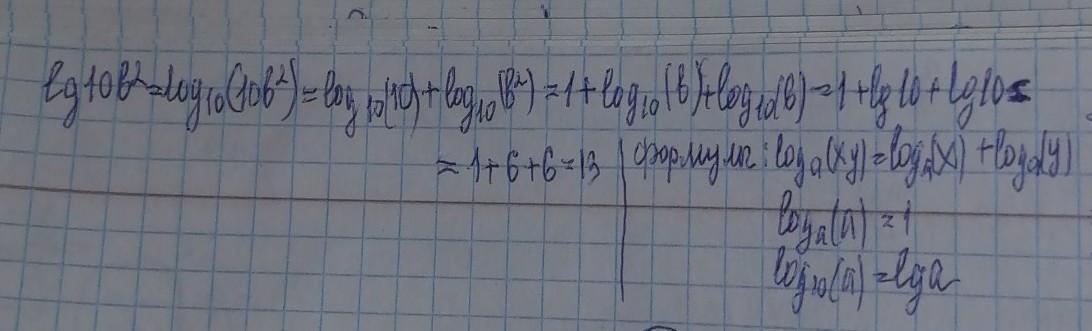 lg10b²=log₁₀(10b²)=log₁₀(10)+log₁₀(b²)=1+log₁₀(b)+log₁₀(b)=1+lg10+lg10=
=1+6+6=13
формулы: logₐ(xy)=logₐ(x)+logₐ(y)
logₐ(a)=1
log₁₀(a)=lga